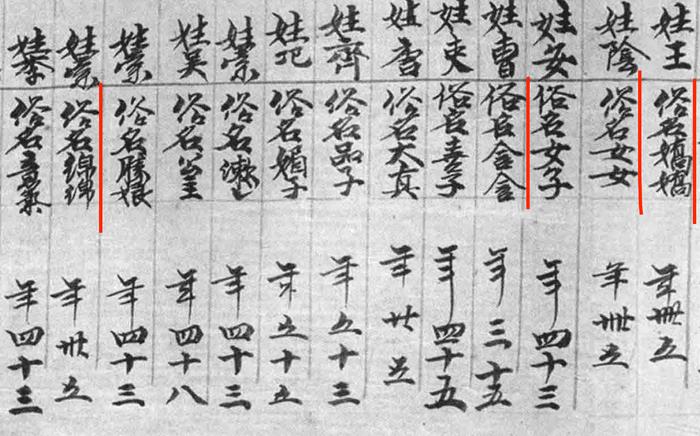 姓王 俗名嬌嬌 年卌五
姓陰 俗名女女 年卌五
姓安 俗名女子 年四十三
姓曹 俗名含含 年三十五
姓史 俗名喜子 年四十五
姓 俗名大真 年廿五
姓齊 俗名品子 年五十三
姓氾 俗名媚子 年五十五
姓索 俗名漱 年四十三
姓吳 俗名 年四十八
姓索 俗名勝娘 年四十三
姓索 俗名綿綿 年卅五
姓李 俗名意 年四十三